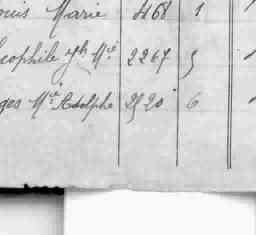 ouis Marie 468 1
éophile Jh Mie 2267 5
ges Mie Adolphe 2520 6